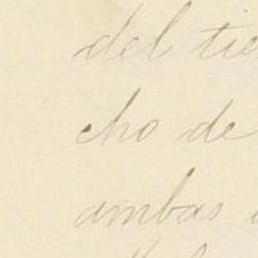 del tie
cho de
ambas